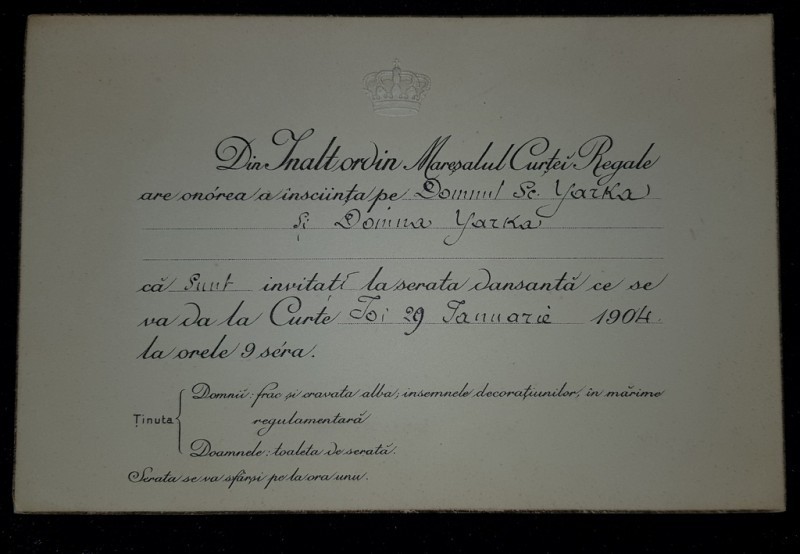 Din Inalt ordin Mareșalul Curței Regale
are onórea a însciința pe Domnul Sc. Yarka
și Domna Yarka
că sunt invitatĭ la serata dansantă ce se
va da la Curte Joi 29 Ianuarie 1904
la orele 9 séra.
Ținuta
Domnii: frac și cravata alba; insemnele decorațiunilor, în mărime
regulamentară
Doamnele: toaleta de serată.
Serata se va sfârși pe la ora unu.